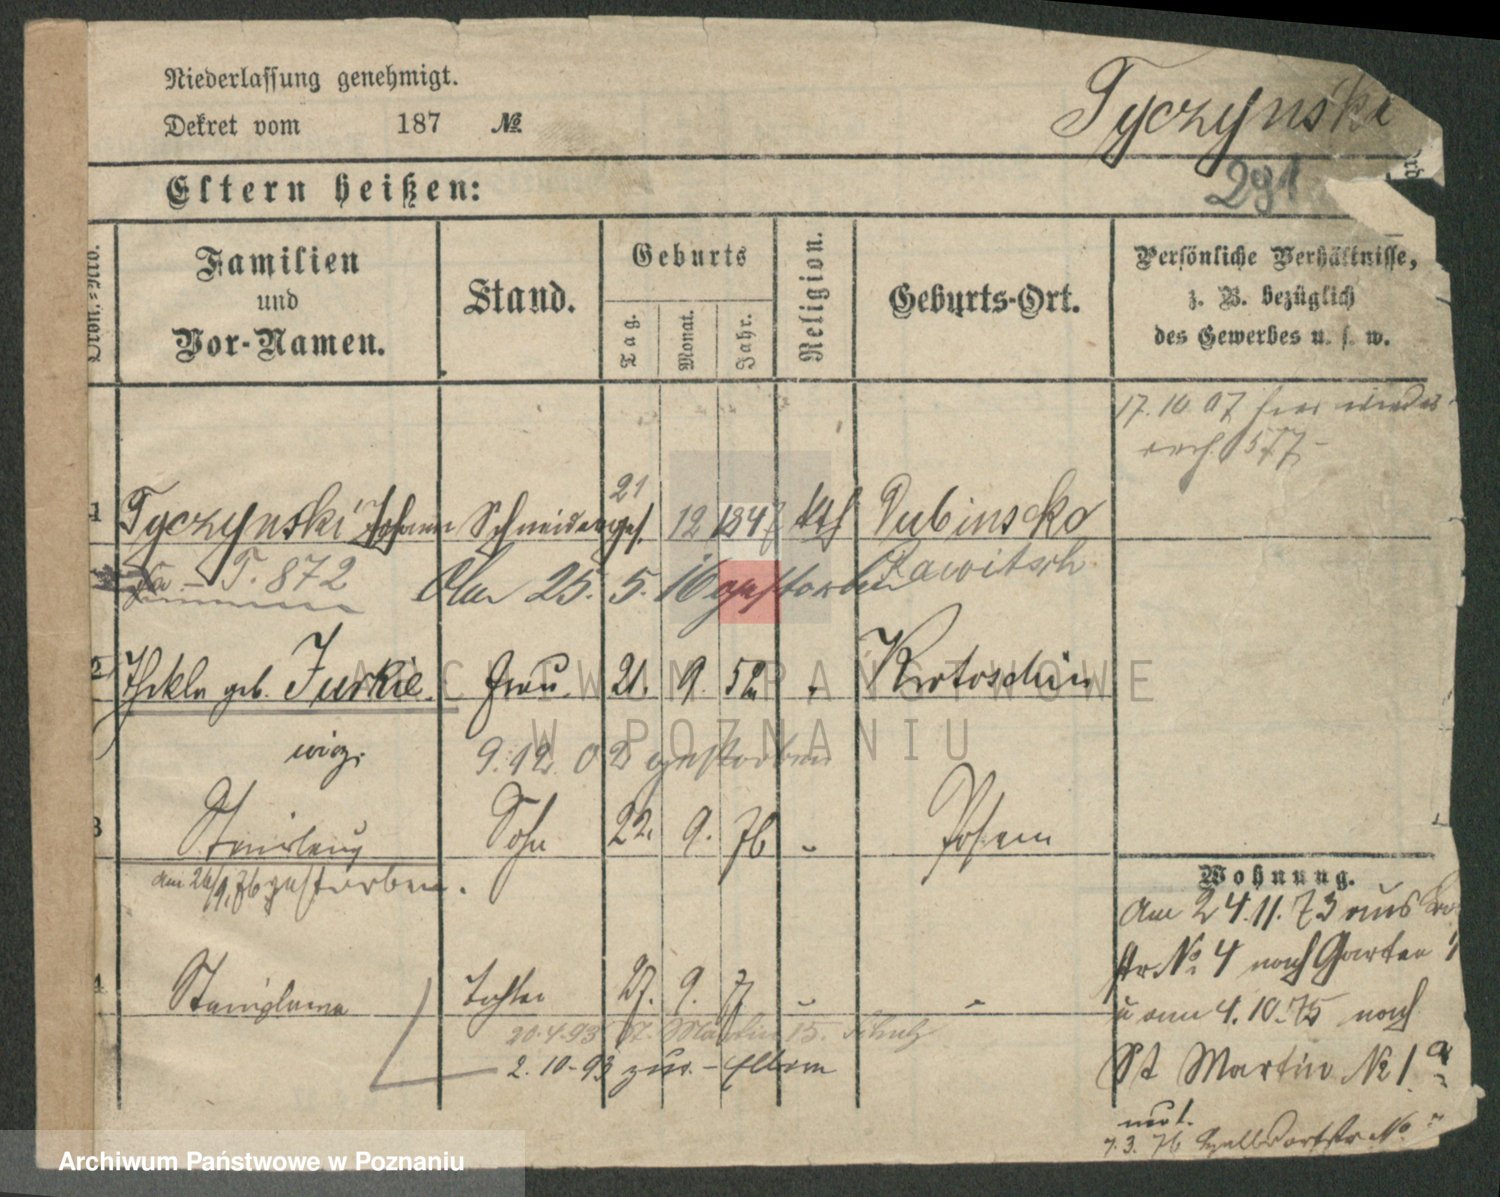 Niederlassung genehmigt.
Dekret vom 187 №
Tyczynski
291
Eltern heißen:
Familien und Vor-Namen.
Stand.
Geburts
Tag.
Monat.
Jahr.
Religion.
Geburts-Ort.
Persönliche Verhältnisse,
z. B. bezüglich
des Gewerbes u. s. w.
17. 10. 07 hier wieder
577
21
1 Tyczynski Johann Schneiderges. 12 1847 kth Dubinsko
T. 872 25. 5. 16 gestorben Rawitsch
2 Thekla geb. Jurkie Frau 21. 9. 52 Krotoschin
9. 12. 02 gestorben
3 Sohn 22. 9. 76 Posen
am 26/9. 76 gestorben.
Wohnung.
Am 24. 11. 73 aus
str № 4 nach Garten
4 Stanislawa Tochter 27. 9. 77
u am 4. 10. 75 nach
20.4.93 St. Martin 15.
2. 10. 93 zur. - Eltern
St Martin № 1 a
7. 3. 76 Halbdorfstr №
ARCHIWUM PAŃSTWOWE
W POZNANIU
Archiwum Państwowe w Poznaniu